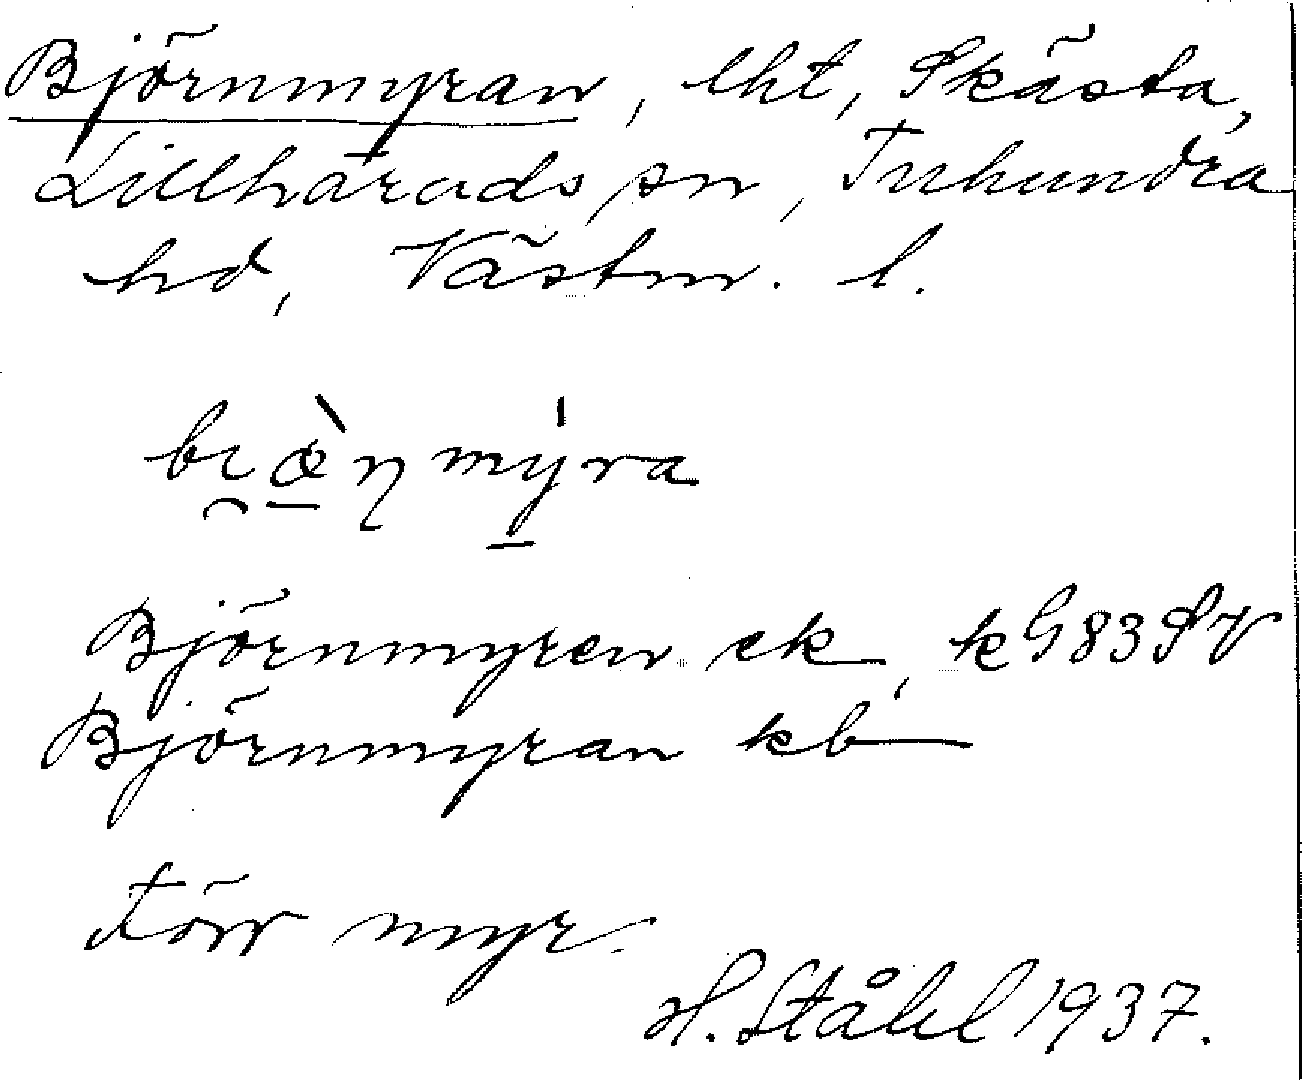 Björnmyran, lht, Skästa,
Lillhärads sn, Tuhundra
hd, Västm. l.
Björnmyren ek, k G83SV
Björnmyran kb
Törr myr.
H. Ståhl 1937.